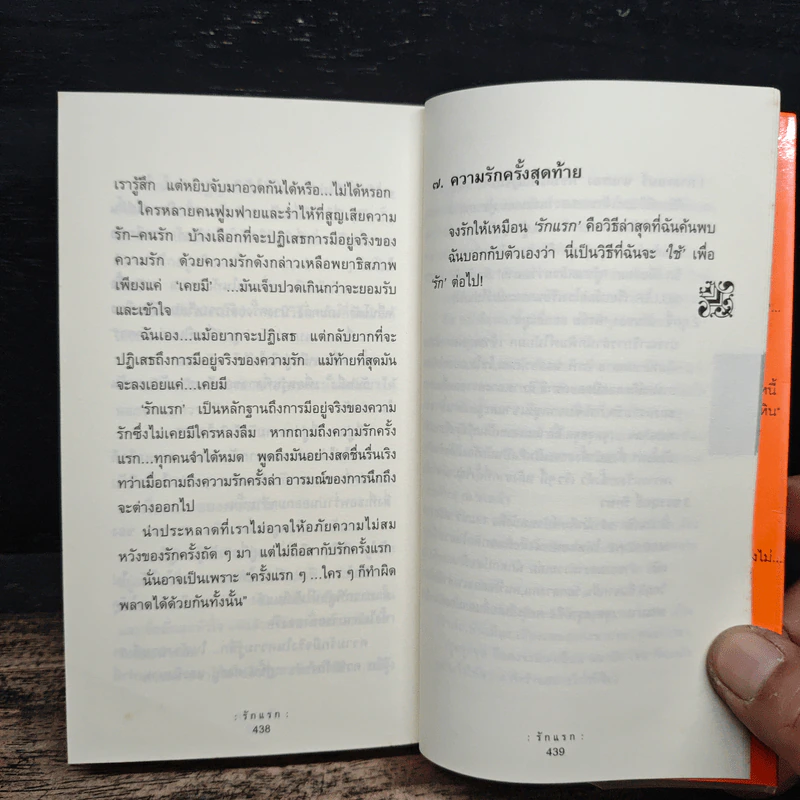 เรารู้สึก แต่หยิบจับมาอวดกันได้หรือ...ไม่ได้หรอก
ใครหลายคนฟูมฟายและร่ำไห้ที่สูญเสียความ
รัก–คนรัก บ้างเลือกที่จะปฏิเสธการมีอยู่จริงของ
ความรัก ด้วยความรักดังกล่าวเหลือพยาธิสภาพ
เพียงแค่ ‘เคยมี’ ...มันเจ็บปวดเกินกว่าจะยอมรับ
และเข้าใจ
ฉันเอง...แม้อยากจะปฏิเสธ แต่กลับยากที่จะ
ปฏิเสธถึงการมีอยู่จริงของความรัก แม้ท้ายที่สุดมัน
จะลงเอยแค่...เคยมี
‘รักแรก’ เป็นหลักฐานถึงการมีอยู่จริงของความ
รักซึ่งไม่เคยมีใครหลงลืม หากถามถึงความรักครั้ง
แรก...ทุกคนจำได้หมด พูดถึงมันอย่างสดชื่นรื่นเริง
ทว่าเมื่อถามถึงความรักครั้งล่า อารมณ์ของการนึกถึง
จะต่างออกไป
น่าประหลาดที่เราไม่อาจให้อภัยความไม่สม
หวังของรักครั้งถัด ๆ มา แต่ไม่ถือสากับรักครั้งแรก
นั่นอาจเป็นเพราะ “ครั้งแรก ๆ ...ใคร ๆ ก็ทำผิด
พลาดได้ด้วยกันทั้งนั้น”
: รักแรก :
438
๗. ความรักครั้งสุดท้าย
จงรักให้เหมือน ‘รักแรก’ คือวิธีล่าสุดที่ฉันค้นพบ
ฉันบอกกับตัวเองว่า นี่เป็นวิธีที่ฉันจะ ‘ใช้’ เพื่อ
‘รัก’ ต่อไป!
: รักแรก :
439